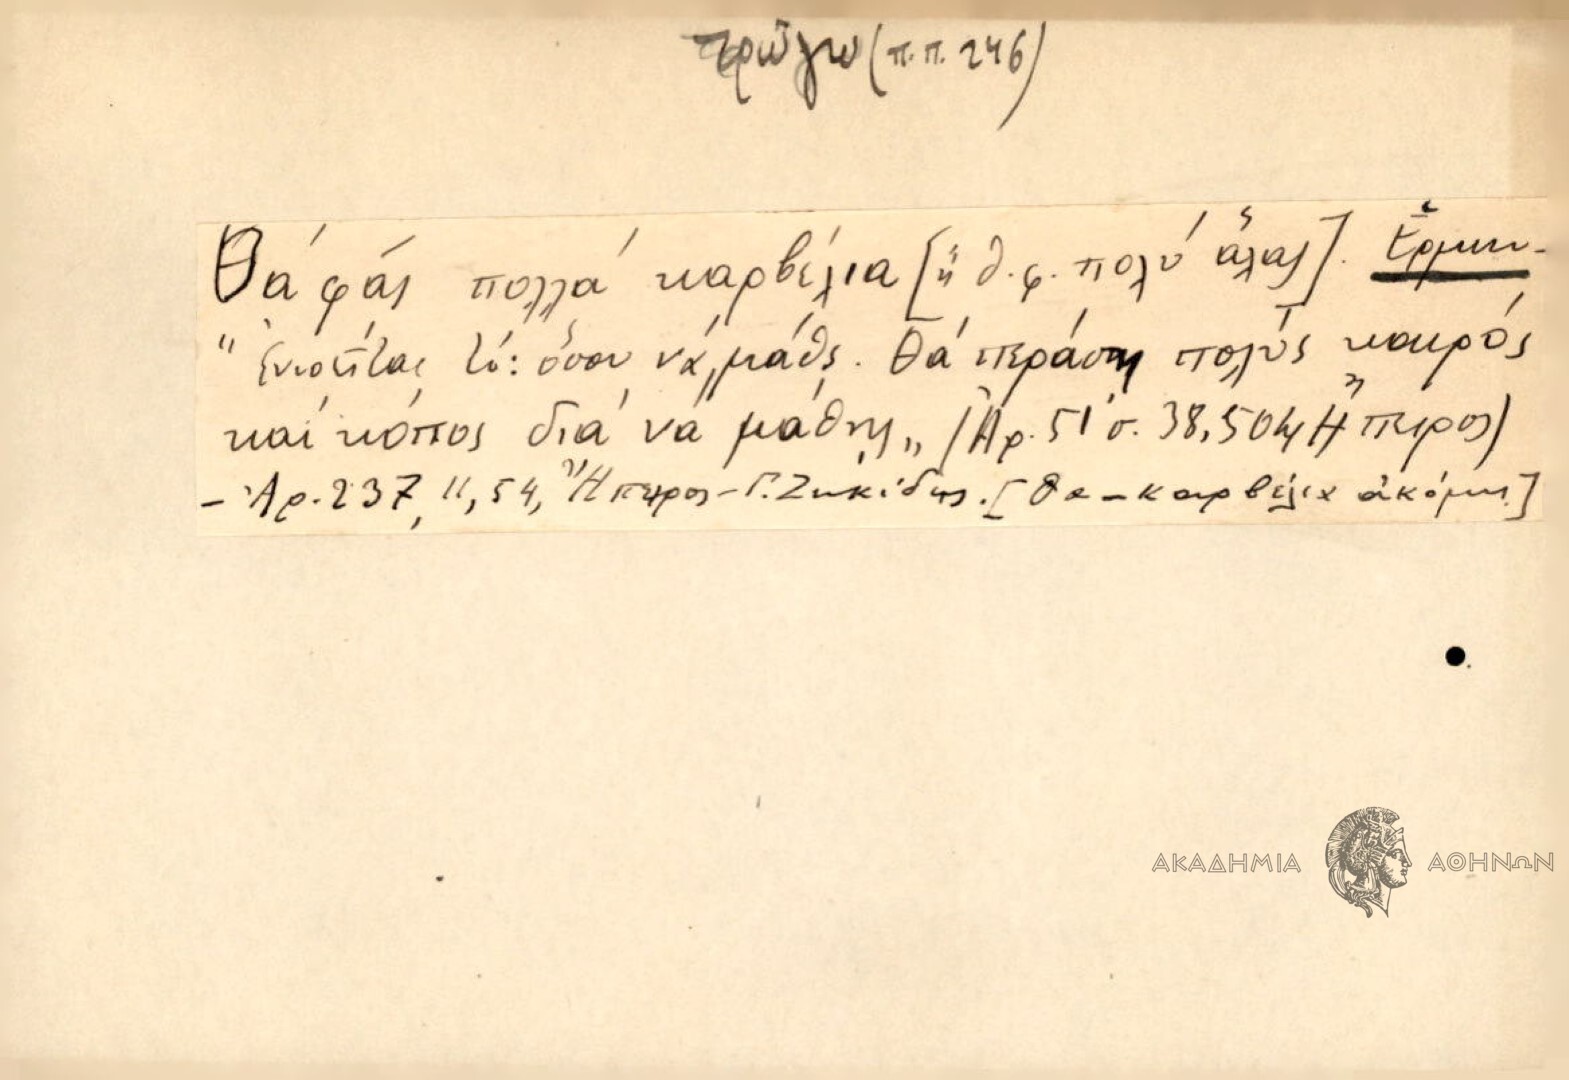 τρώγω (π.π. 246)
Θά φάς πολλά καρβέλια [ἤ θ. φ. πολύ ἅλας]. Ἑρμην-
" ἐννοεῖται τό: ὅσου νά μάθῃς. Θά περάσῃ πολύς καιρός
καί κόπος διά νά μάθῃς „ (Ἀρ. 51 σ. 38, 504 Ἤπειρος)
– Ἀρ. 237, 11, 54, Ἤπειρος – Γ. Ζηκίδης. [θα – καρβέλια ἀκόμη.]
ΑΚΑΔΗΜΙΑ ΑΘΗΝΩΝ